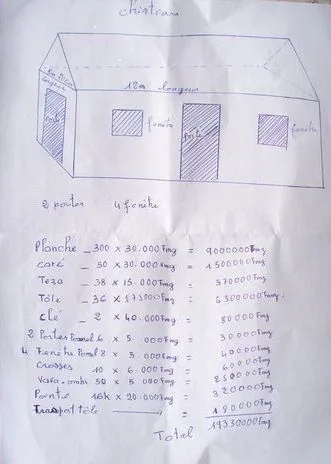 12m longueur
porte
fenêtre
porte
fenêtre
2 portes 4 fenêtre
Planche _ 300 x 30.000 Fmg = 9000000 Fmg
carré _ 50 x 30.000 Fmg = 1500000 Fmg
Teza _ 38 x 15.000 Fmg = 570000 Fmg
Tôle _ 36 x 175000 Fmg = 6300000 Fmg
clé _ 2 x 40.000 Fmg = 80000 Fmg
2 Portes 6 x 5 000 Fmg = 30000 Fmg
4 Fenêtre 8 x 5.000 Fmg = 40000 Fmg
Crosses 10 x 6.000 Fmg = 60000 Fmg
50 x 5.000 Fmg = 250000 Fmg
Pointe 16k x 20.000 Fmg = 320000 Fmg
Transport tôle = 180000 Fmg
Total 19330000 Fmg